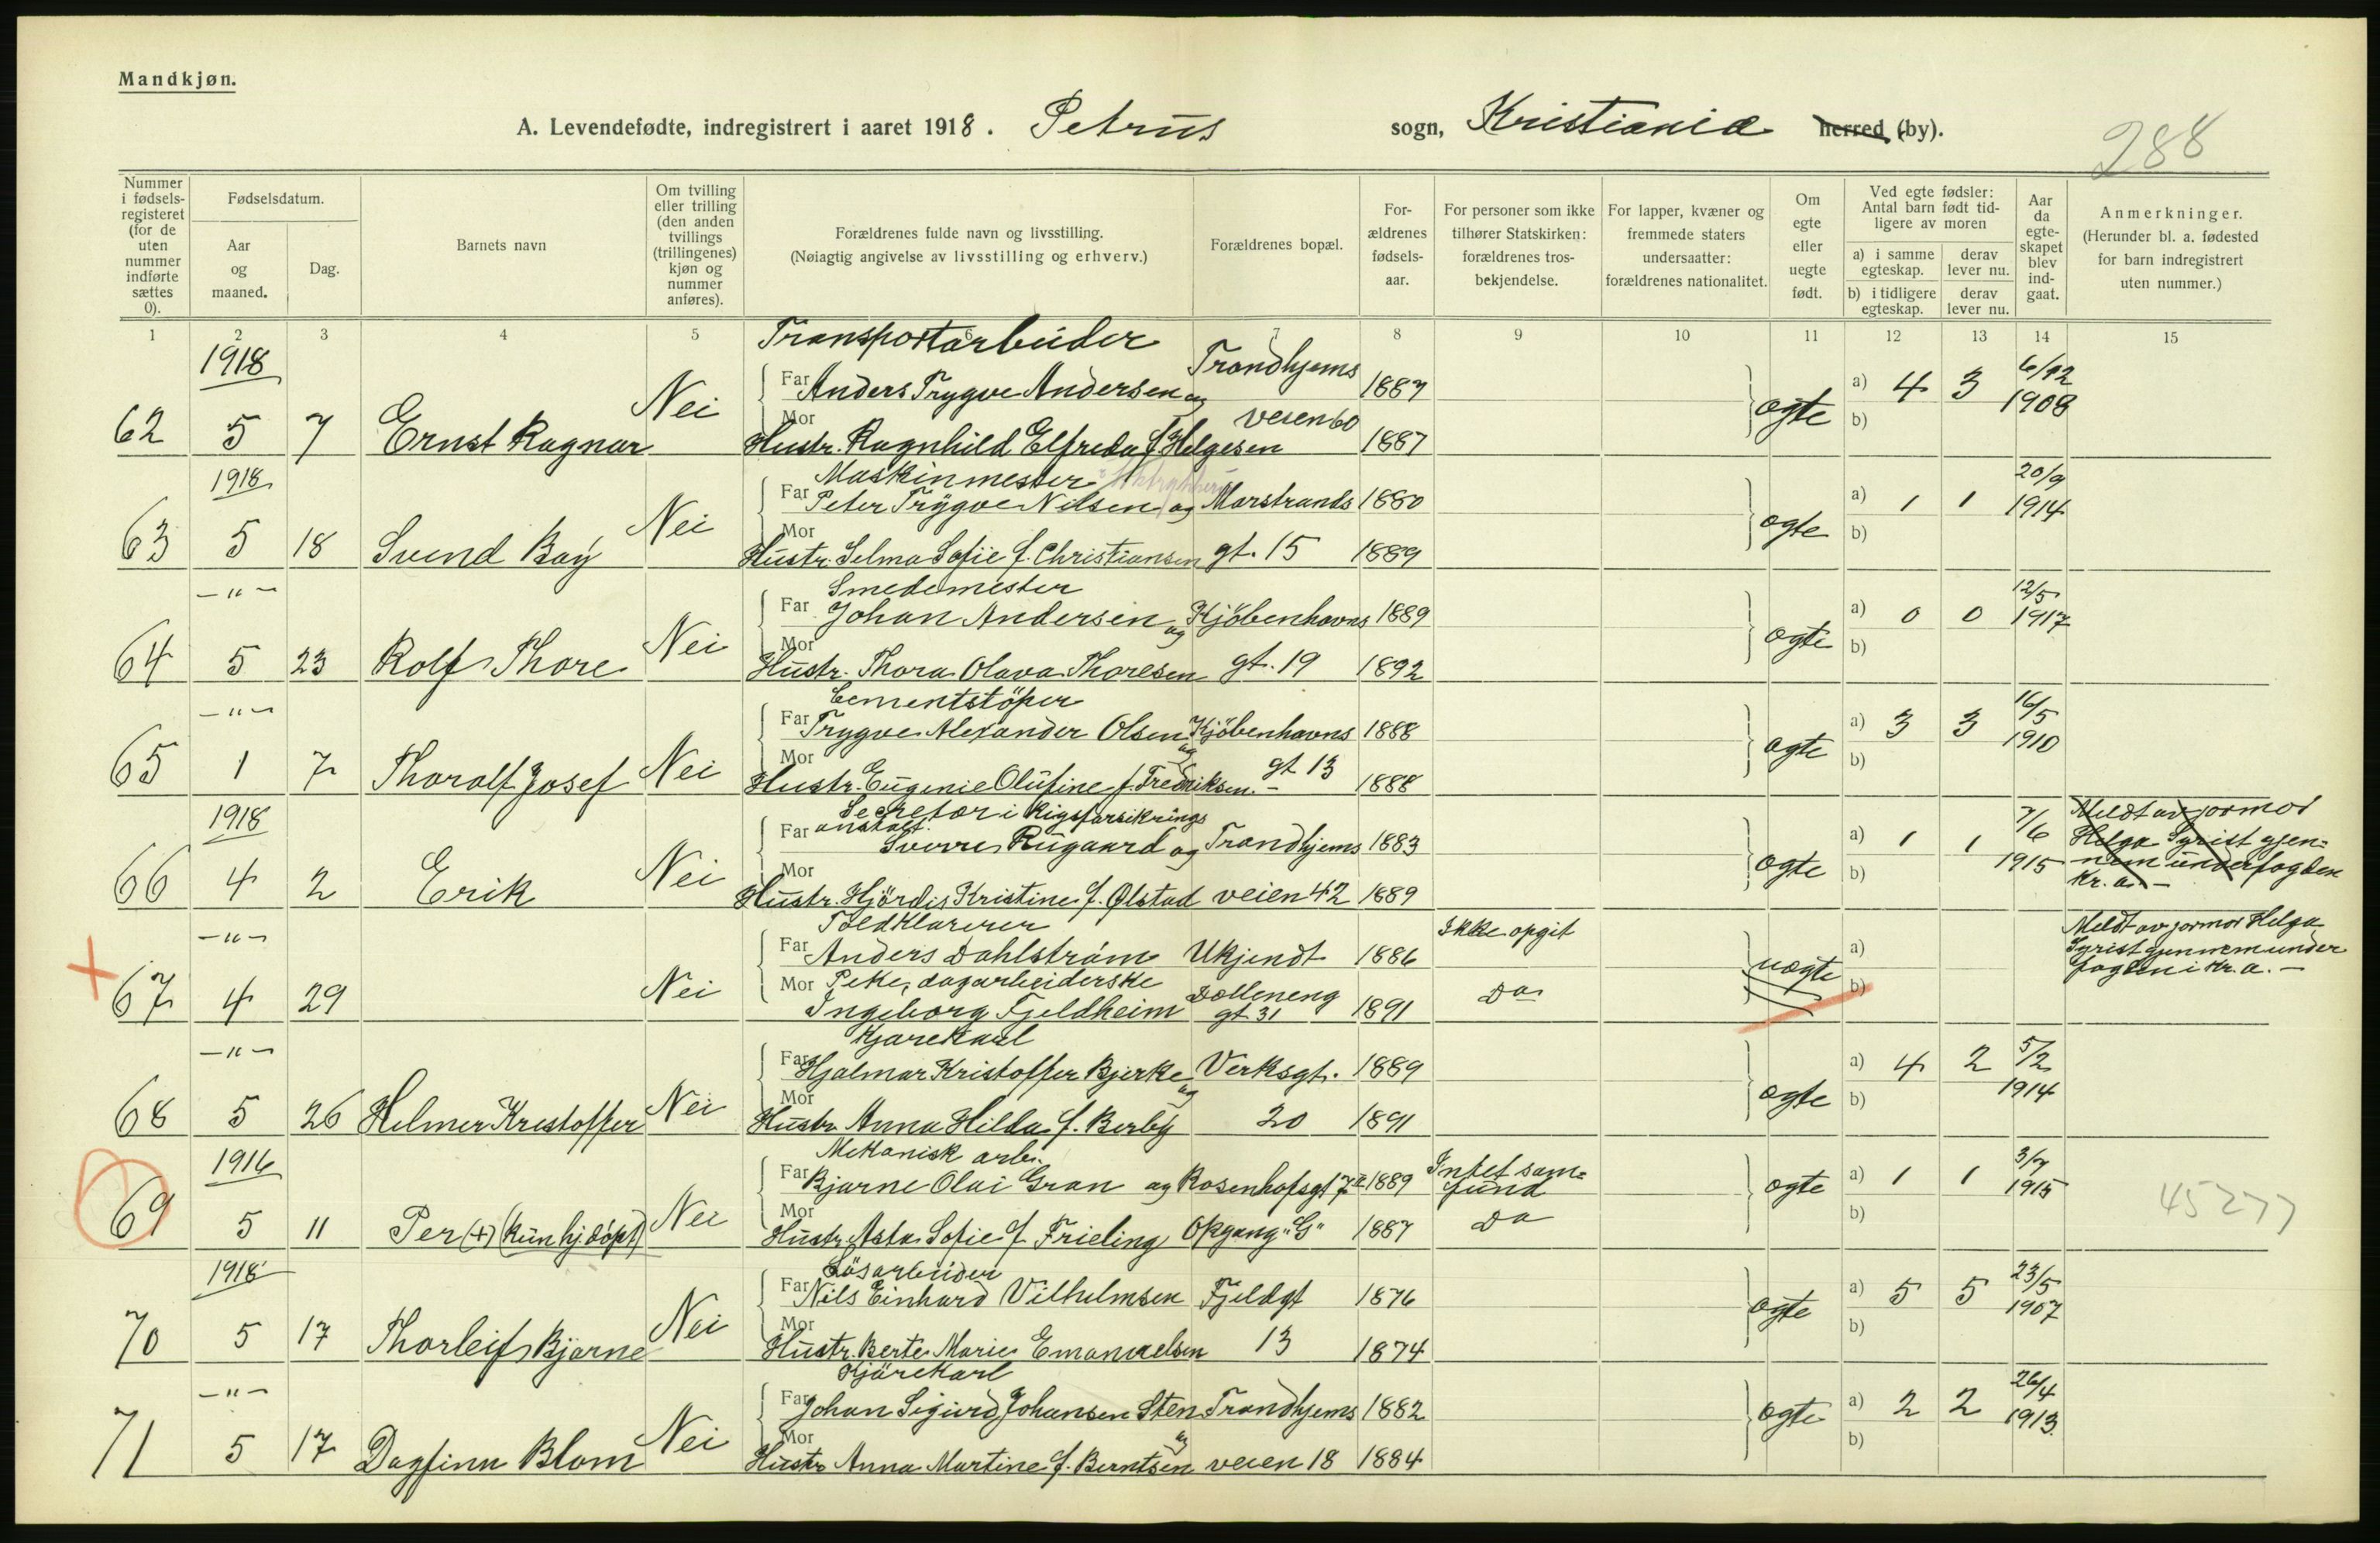 Mandkjøn.
A. Levendefødte, indregistrert i aaret 1918. Petrus sogn, Kristiania herred (by).
288
Nummer i fødsels-registeret (for de uten nummer indførte sættes 0).
Fødselsdatum.
Aar og maaned.
Dag.
Barnets navn
Om tvilling eller trilling (den anden tvillings (trillingenes) kjøn og nummer anføres).
Forældrenes fulde navn og livsstilling.
(Nøiagtig angivelse av livsstilling og erhverv.)
Forældrenes bopæl.
For-ældrenes fødsels-aar.
For personer som ikke tilhører Statskirken: forældrenes tros-bekjendelse.
For lapper, kvæner og fremmede staters undersaatter: forældrenes nationalitet.
Om egte eller uegte født.
Ved egte fødsler: Antal barn født tid-ligere av moren
a) i samme egteskap. derav lever nu.
b) i tidligere egteskap. derav lever nu.
Aar da egte-skapet blev ind-gaat.
Anmerkninger.
(Herunder bl. a. fødested for barn indregistrert uten nummer.)
1 2 3 4 5 6 7 8 9 10 11 12 13 14 15
1918 Transportarbeider
Far Anders Trygve Andersen og Trondhjems 1887 a) 4 3 6/12 1908
62 5 7 Ernst Ragnar Nei Mor Hustr. Ragnhild Elfreda f. Helgesen veien 60 1887 egte b)
1918 Maskinmester
Far Peter Trygve Nilsen og Marstrands 1880 a) 1 1 20/9 1914
63 5 18 Svend Baÿ Nei Mor Hustr. Selma Sofie f. Christiansen gt. 15 1889 egte b)
—"— Smedemester
Far Johan Andersen og Kjöbenhavns 1889 a) 0 0 12/5 1917
64 5 23 Rolf Thore Nei Mor Hustr. Thora Olava Thoresen gt. 19 1892 egte b)
—"— Cementstöper
Far Trygve Alexander Olsen og Kjöbenhavns 1888 a) 3 3 16/5 1910
65 1 7 Thoralf Josef Nei Mor Hustr. Eugenie Olufine f. Fredriksen. gt 13 1888 egte b)
1918 Secretær i Rigsforsikrings anstalt.
Far Sverre Rugaard og Trondhjems 1883 a) 1 1 7/6 1915 Meldt av jormor Helga Syrist gjen= nem underfogden Kr. a. —
66 4 2 Erik Nei Mor Hustr. Hjördis Kristine f. Ølstad veien 42 1889 egte b)
—"— Toldklarerer
Far Anders Dahlström Ukjendt 1886 Ikke opgit a) Meldt av jormor Helga Syrist gjennem under fogden i Kr. a. —
67 4 29 Nei Mor Pike, dagarbeiderske Ingeborg Fjeldheim Dælleneng gt 31 1891 Do uegte b)
—"— Kjørekarl
Far Hjalmar Kristoffer Bjerke og Verksgt. 1889 a) 4 2 5/2 1914
68 5 26 Helmer Krestoffer Nei Mor Hustr Anna Hilda f. Berby 20 1891 egte b)
1916 Mekanisk arb.
Far Bjarne Olai Gran og Rosenhofsgt 7 II 1889 Intet sam= fund egte a) 1 1 3/7 1915 45277
69 5 11 Per (+) (kun hj.döpt) Nei Mor Hustr. Asta Sofie f Frieling Opgang "G" 1887 Do b)
1918 Lösarbeider
Far Nils Einhard Vilhelmsen Fjeldgt 1876 a) 5 5 23/5 1907
70 5 17 Thorleif Bjarne Nei Mor Hustr. Berte Marie Emanuelsen 13 1874 egte b)
—"— Kjörekarl
Far Johan Sigurd Johansen Sten og Trondhjems 1882 a) 2 2 26/4 1913.
71 5 17 Dagfinn Blom Nei Mor Hustr Anna Martine f. Berntsen veien 18 1884 egte b)